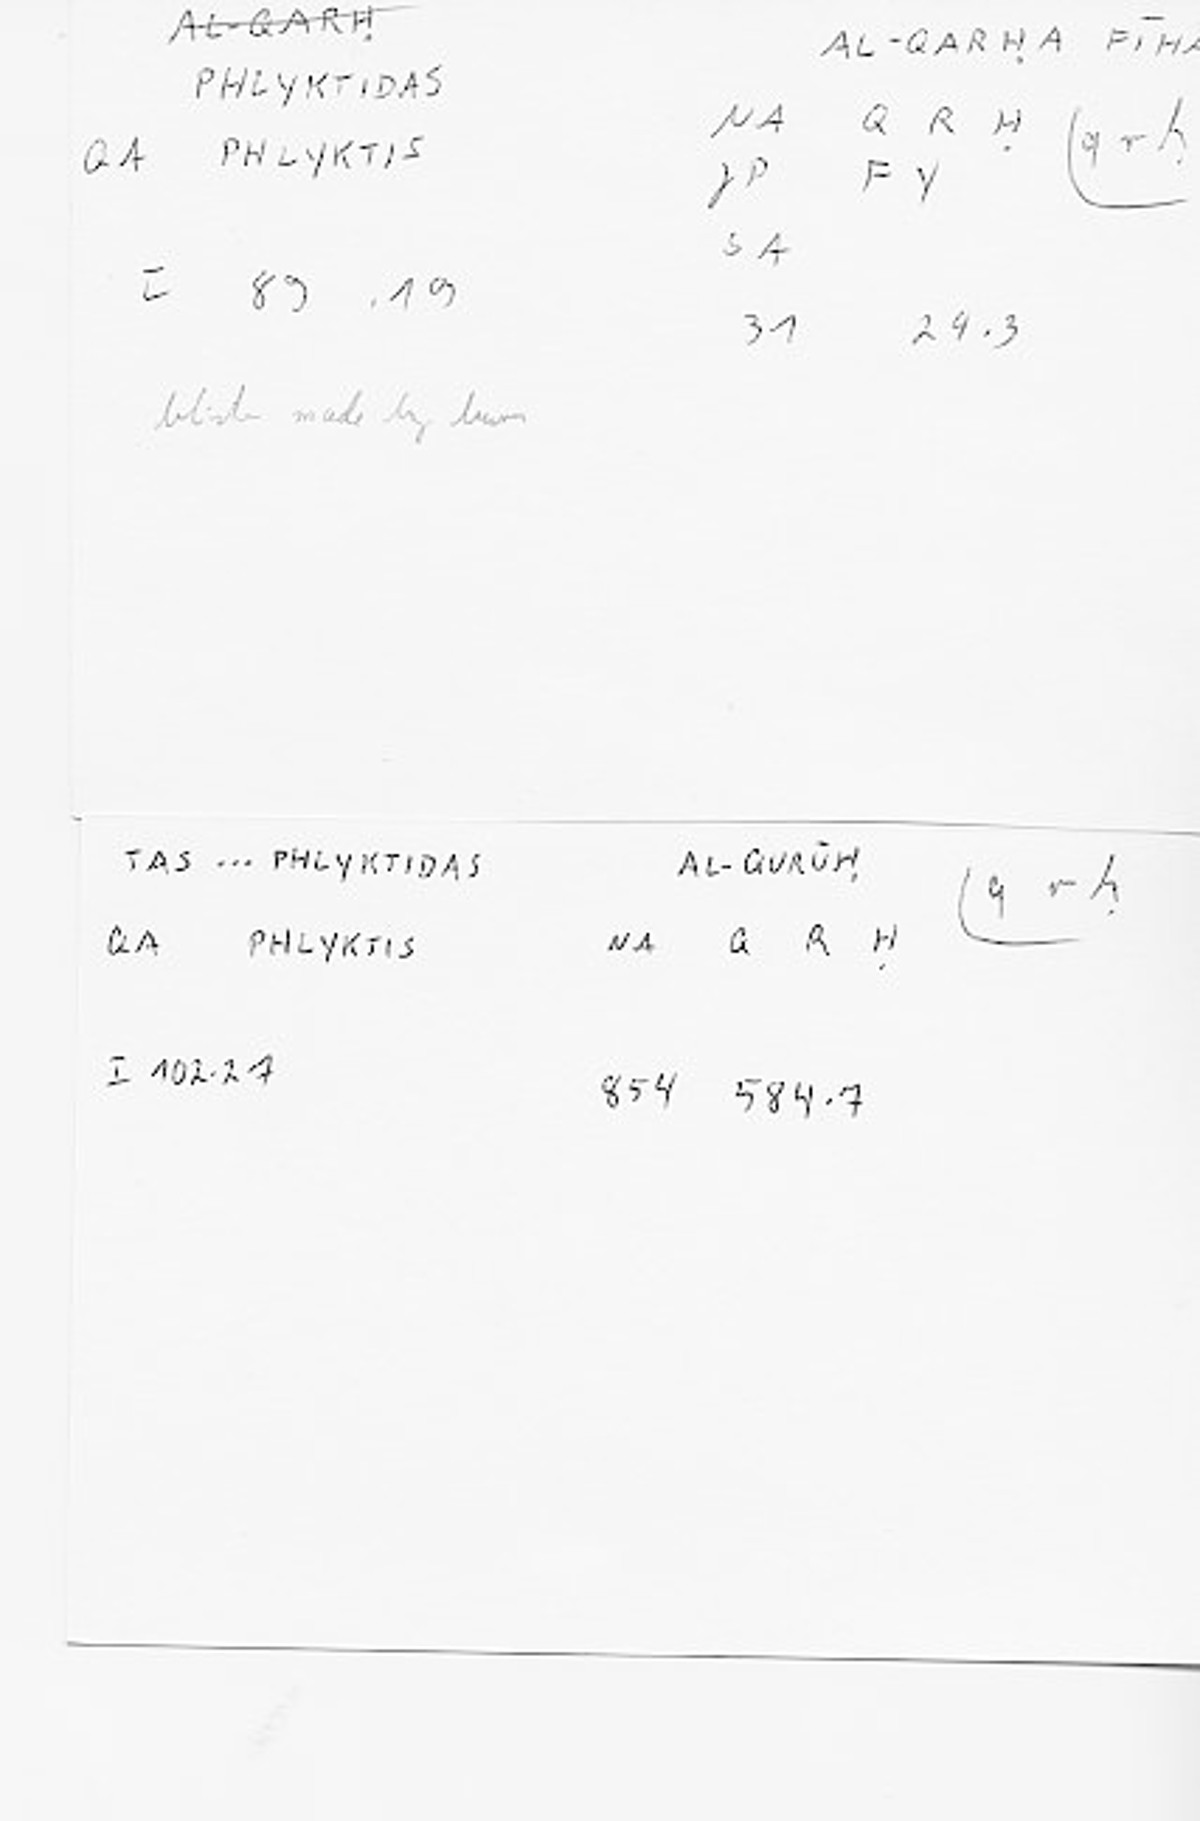 AL-QARḤ
PHLYKTIDAS
QA PHLYKTIS
I 89 .19
made by
AL-QARḤA FĪHA
NA Q R Ḥ (q r ḥ
JP F Y
SA
31 29.3
TAS ... PHLYKTIDAS
QA PHLYKTIS
I 102.27
AL-QURŪḤ
NA Q R Ḥ (q r ḥ
854 584.7